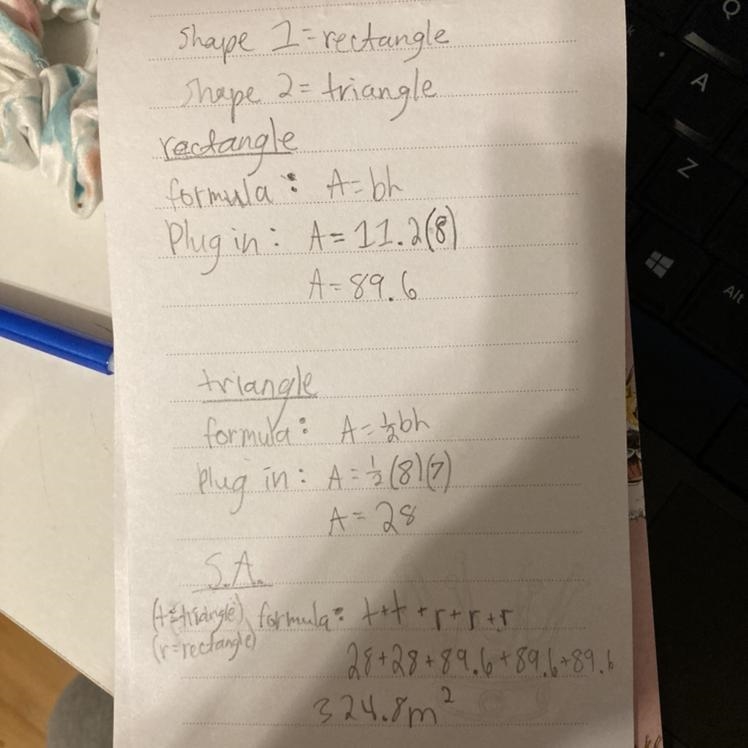 Shape 1=rectangle
Shape 2= triangle
rectangle
formula: A=bh
Plug in: A=11.2(8)
A=89.6
triangle
formula: A=½bh
plug in: A=½(8)(7)
A=28
S.A.
(t=triangle) formula: t+t+r+r+r
(r=rectangle)
28+28+89.6+89.6+89.6
324.8m²
Q
A
Z
Alt